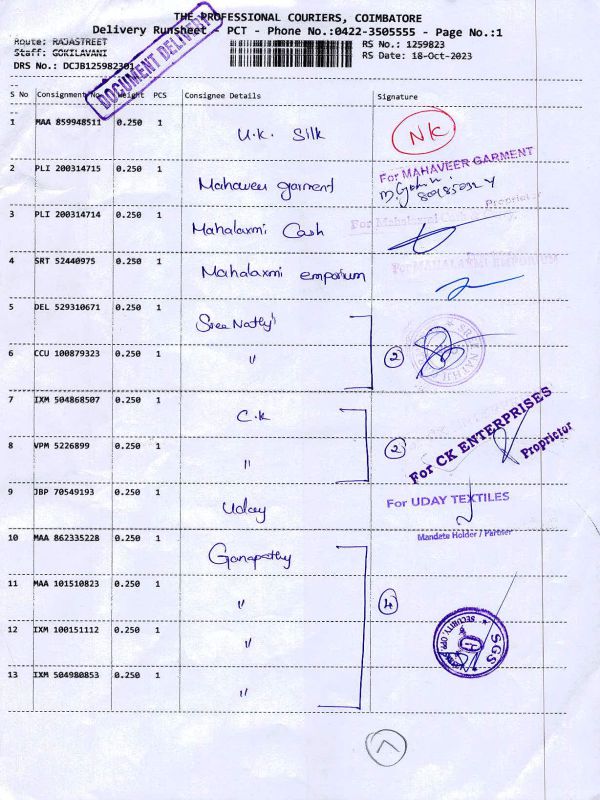 THE PROFESSIONAL COURIERS, COIMBATORE
Delivery Runsheet - PCT - Phone No.:0422-3505555 - Page No.:1
Route: RAJASTREET
Staff: GOKILAVANI
DRS No.: DCJB125982301
RS No.: 1259823
RS Date: 18-Oct-2023
DOCUMENT DELIVERY
S No Consignment No. Weight PCS Consignee Details Signature
1 MAA 859948511 0.250 1 U.K. Silk NK
2 PLI 200314715 0.250 1 Mahaveer garment
For MAHAVEER GARMENT
Proprietor
3 PLI 200314714 0.250 1 Mahalaxmi Cash
For Mahalaxmi Cash
4 SRT 52440975 0.250 1 Mahalaxmi emporium
For MAHALAXMI EMPORIUM
5 DEL 529310671 0.250 1 Sree Nathji
6 CCU 100879323 0.250 1 " 2
7 IXM 504868507 0.250 1 C.K
8 VPM 5226899 0.250 1 " 2
For CK ENTERPRISES
Proprietor
9 JBP 70549193 0.250 1 Uday
For UDAY TEXTILES
Mandate Holder / Partner
10 MAA 862335228 0.250 1 Ganapathy
11 MAA 101510823 0.250 1 " 4
12 IXM 100151112 0.250 1 "
SGS
SECURITY, OPP
13 IXM 504980853 0.250 1 "